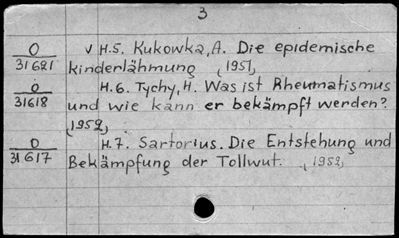 3
O
31621
√ H.5. Kukowka, A. Die epidemische
kinderlähmung (1951)
O
31618
H.6. Tychy, H. Was ist Rheumatismus
und wie kann er bekämpft werden?
(1952)
O
31617
H.7. Sartorius. Die Entstehung und
Bekämpfung der Tollwut. (1952)